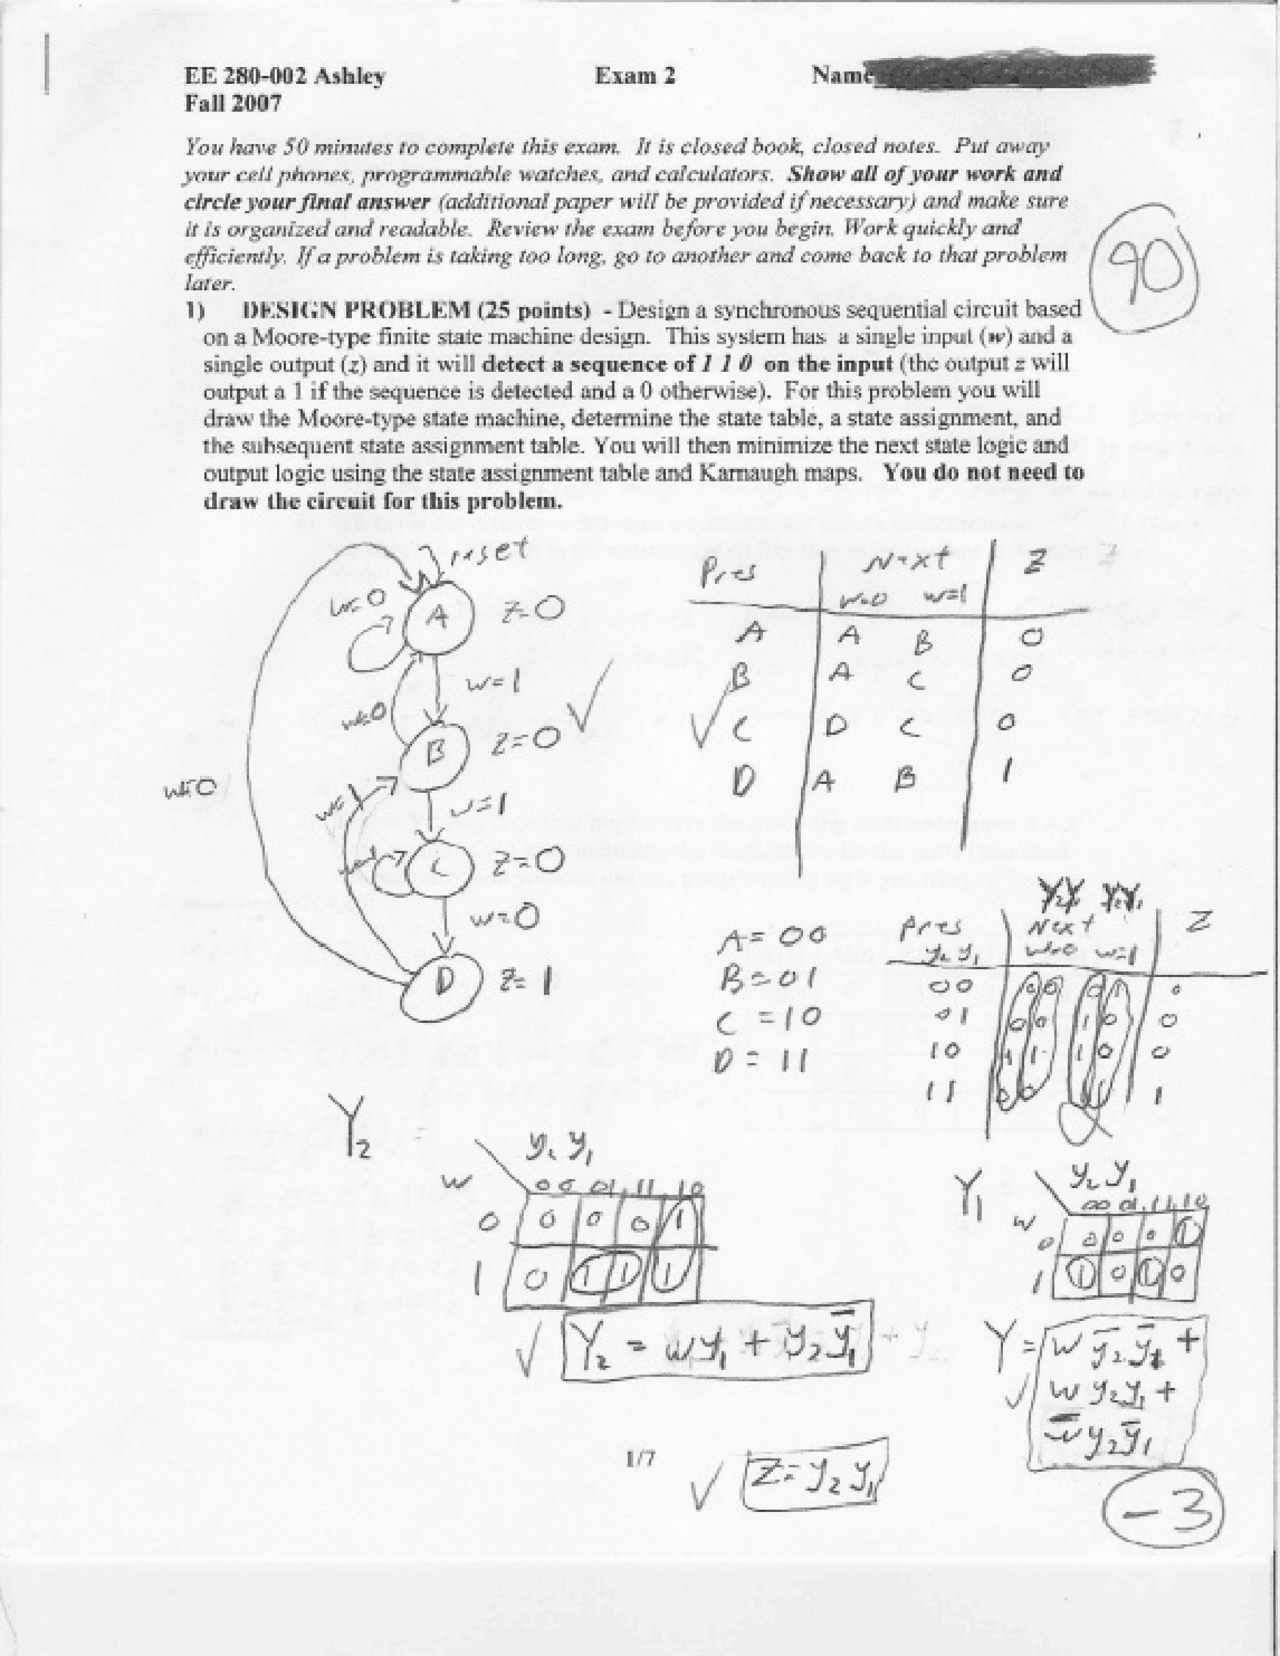 EE 280-002 Ashley Exam 2 Name
Fall 2007
You have 50 minutes to complete this exam. It is closed book, closed notes. Put away
your cell phones, programmable watches, and calculators. Show all of your work and
circle your final answer (additional paper will be provided if necessary) and make sure
it is organized and readable. Review the exam before you begin. Work quickly and
efficiently. If a problem is taking too long, go to another and come back to that problem
later.
90
1) DESIGN PROBLEM (25 points) - Design a synchronous sequential circuit based
on a Moore-type finite state machine design. This system has a single input (w) and a
single output (z) and it will detect a sequence of 1 1 0 on the input (the output z will
output a 1 if the sequence is detected and a 0 otherwise). For this problem you will
draw the Moore-type state machine, determine the state table, a state assignment, and
the subsequent state assignment table. You will then minimize the next state logic and
output logic using the state assignment table and Karnaugh maps. You do not need to
draw the circuit for this problem.
reset
w=0
A Z=0
w=1
w=0
B Z=0
w=1
w=1
C Z=0
w=0
w=0
D Z=1
Pres Next Z
w=0 w=1
A A B 0
B A C 0
C D C 0
D A B 1
A = 00
B = 01
C = 10
D = 11
Y2Y1 Y2Y1
Pres Next Z
y2 y1 w=0 w=1
00 00 01 0
01 00 10 0
10 11 10 0
11 00 1
Y2 =
y2 y1
w 00 01 11 10
0 0 0 0 1
1 0 1 1 1
Y2 = wy1 + y2 y̅1
Y1
y2 y1
w 00 01 11 10
0 0 0 0 1
1 1 0 1 0
Y = w y̅2 y̅1 +
w y2 y1 +
w̅ y2 y̅1
1/7
Z = y2 y1
-3